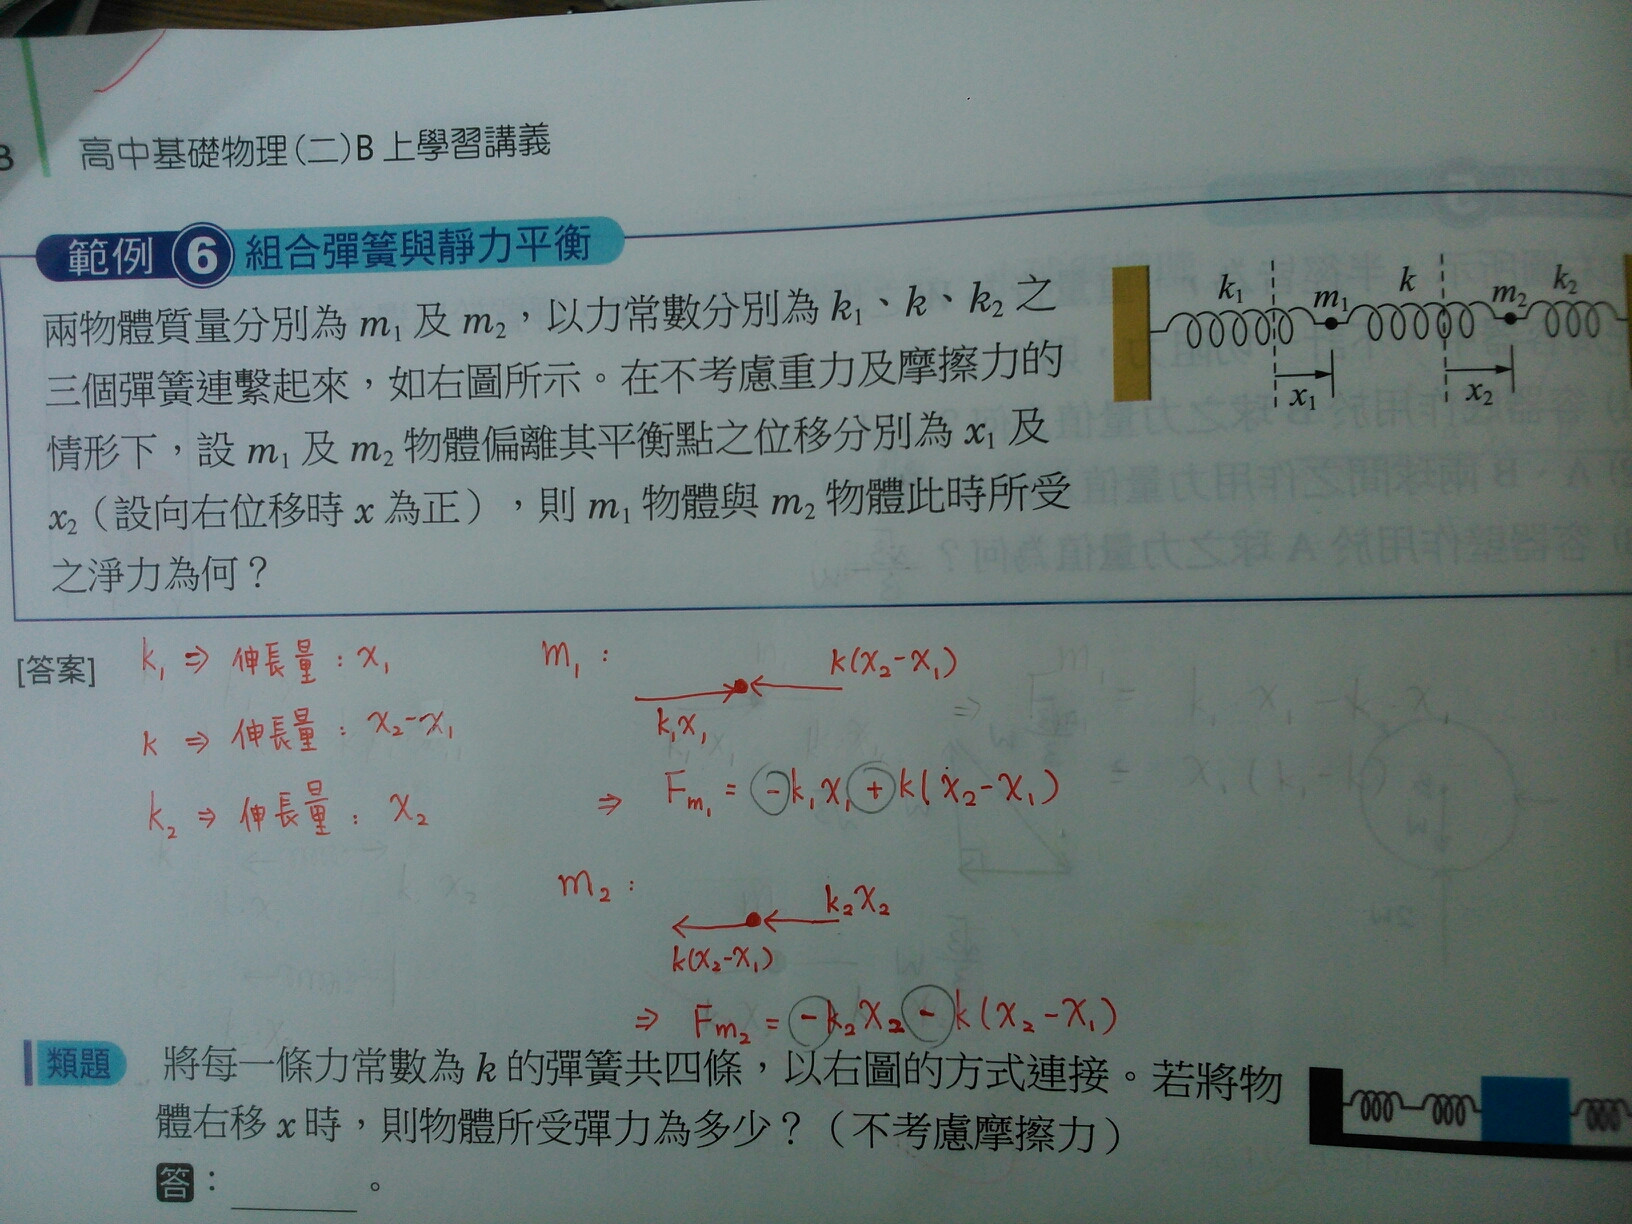 高中基礎物理(二)B上學習講義
範例 6 組合彈簧與靜力平衡
兩物體質量分別為 m₁ 及 m₂,以力常數分別為 k₁、k、k₂ 之
三個彈簧連繫起來,如右圖所示。在不考慮重力及摩擦力的
情形下,設 m₁ 及 m₂ 物體偏離其平衡點之位移分別為 x₁ 及
x₂(設向右位移時 x 為正),則 m₁ 物體與 m₂ 物體此時所受
之淨力為何?
k₁ m₁ k m₂ k₂
x₁ x₂
[答案]
k₁ ⇒ 伸長量:x₁
k ⇒ 伸長量:x₂-x₁
k₂ ⇒ 伸長量:x₂
m₁:
k(x₂-x₁)
k₁x₁
⇒ Fm₁ = -k₁x₁+k(x₂-x₁)
m₂:
k₂x₂
k(x₂-x₁)
⇒ Fm₂ = -k₂x₂-k(x₂-x₁)
類題 將每一條力常數為 k 的彈簧共四條,以右圖的方式連接。若將物
體右移 x 時,則物體所受彈力為多少?(不考慮摩擦力)
答:______。